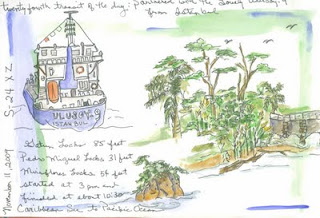 twenty fourth transit of the day. Partnered with the
from Istanbul
ULUSOY-9
ISTANBUL
S-24 XZ
November 11, 2009
Gatun Locks 85 feet
Pedro Miguel Locks 31 feet
Miraflores Locks 54 feet
started at 3 pm and
finished at about 10:30
Caribbean Sea to Pacific Ocean